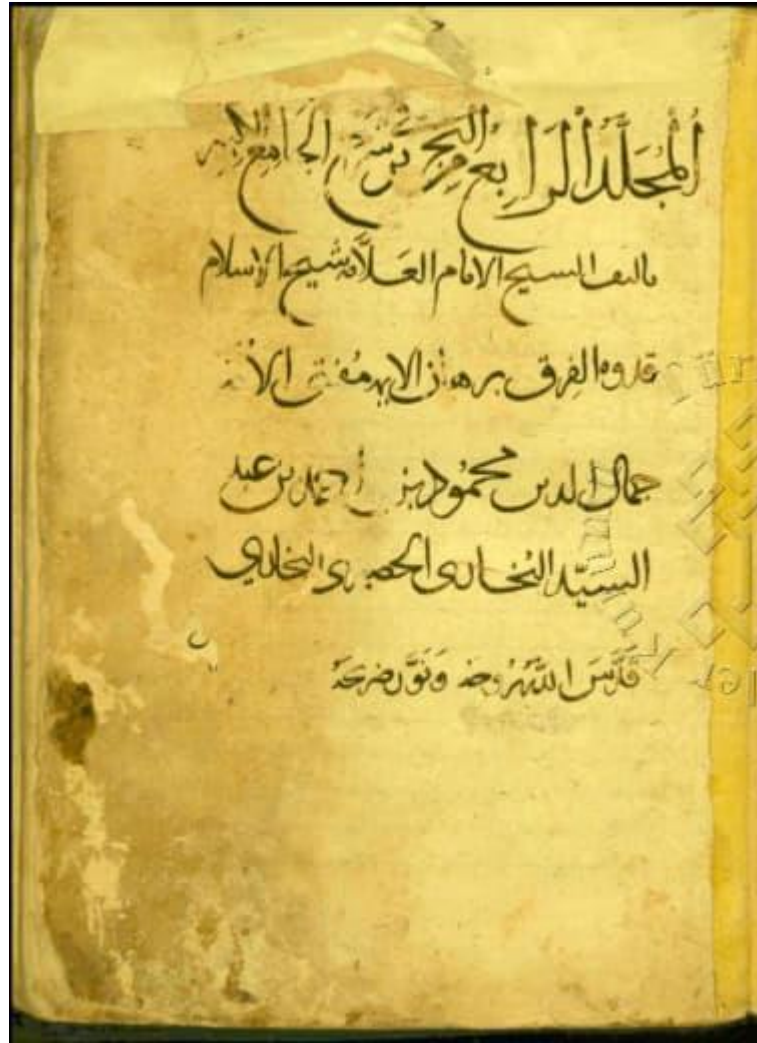 المجلد الرابع من التحرير في شرح الجامع الكبير
تاليف الشيخ الامام العلامة شيخ الاسلام
قدوة الفرق برهان الايمة مفتى الأمة
جمال الدين محمود بن أحمد بن عبد
السيد البخاري الحصيري البخاري
قدس الله روحه ونور ضريحه